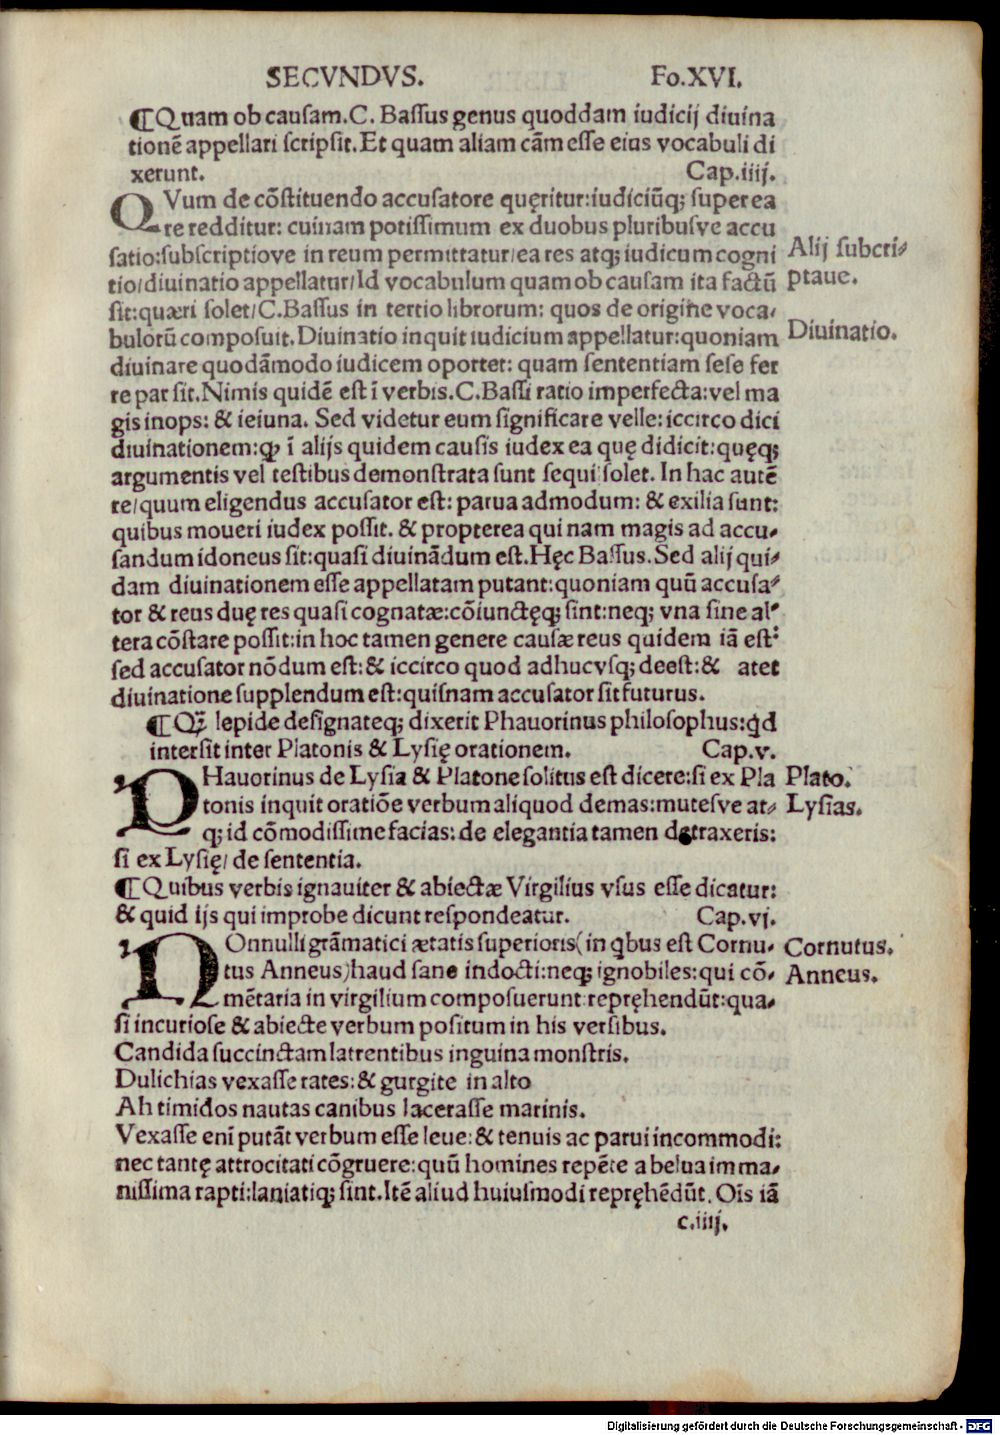 SECVNDVS. Fo.XVI.
¶Quam ob causam.C. Bassus genus quoddam iudicij diuina
tionē appellari scripsit. Et quam aliam cām esse eius vocabuli di
xerunt. Cap.iiij.
QVum de cōstituendo accusatore quęritur:iudiciūq; super ea
re redditur: cuinam potissimum ex duobus pluribusve accu
satio:subscriptiove in reum permittatur/ea res atq; iudicum cogni
tio/diuinatio appellatur/Id vocabulum quam ob causam ita factū
sit:quæri solet/C.Bassus in tertio librorum: quos de origine voca/
bulorū composuit. Diuinatio inquit iudicium appellatur:quoniam
diuinare quodāmodo iudicem oportet: quam sententiam sese fer
re par sit. Nimis quidē est ī verbis.C.Bassi ratio imperfecta:vel ma
gis inops: & ieiuna. Sed videtur eum significare velle: iccirco dici
diuinationem:ꝙ ī alijs quidem causis iudex ea quę didicit:quęq;
argumentis vel testibus demonstrata sunt sequi solet. In hac autē
re/quum eligendus accusator est: parua admodum: & exilia sunt:
quibus moueri iudex possit. & propterea qui nam magis ad accu/
sandum idoneus sit:quasi diuināndum est. Hęc Bassus. Sed alij qui/
dam diuinationem esse appellatam putant:quoniam quū accusa/
tor & reus duę res quasi cognatæ:cōiunctęq; sint:neq; vna sine al/
tera cōstare possit:in hoc tamen genere causæ reus quidem iā est:
sed accusator nōdum est:& iccirco quod adhucvsq; deest:& atet
diuinatione supplendum est:quisnam accusator sit futurus.
Alij subcri/
ptaue.
Diuinatio.
¶Qꝫ lepide designateq; dixerit Phauorinus philosophus:qd
intersit inter Platonis & Lysię orationem. Cap.v.
PHauorinus de Lysia & Platone solitus est dicere:si ex Pla
tonis inquit oratiōe verbum aliquod demas:mutesve at/
q; id cōmodissime facias: de elegantia tamen detraxeris:
si ex Lysię/ de sententia.
Plato.
Lysias.
¶Quibus verbis ignauiter & abiectæ Virgilius vsus esse dicatur:
& quid ijs qui improbe dicunt respondeatur. Cap.vj.
NOnnulli grāmatici ætatis superioris(in qbus est Cornu/
tus Anneus)haud sane indocti:neq; ignobiles:qui cō/
mētaria in virgilium composuerunt:repręhendūt:qua/
si incuriose & abiecte verbum positum in his versibus.
Candida succinctam latrentibus inguina monstris.
Dulichias vexasse rates: & gurgite in alto
Ah timidos nautas canibus lacerasse marinis.
Vexasse enī putāt verbum esse leue: & tenuis ac parui incommodi:
nec tantę attrocitati cōgruere:quū homines repēte a belua imma/
nissima rapti:laniatiq; sint. Itē aliud huiusmodi repręhēdūt. Oīs iā
Cornutus.
Anneus.
c.iiij.
Digitalisierung gefördert durch die Deutsche Forschungsgemeinschaft - DFG